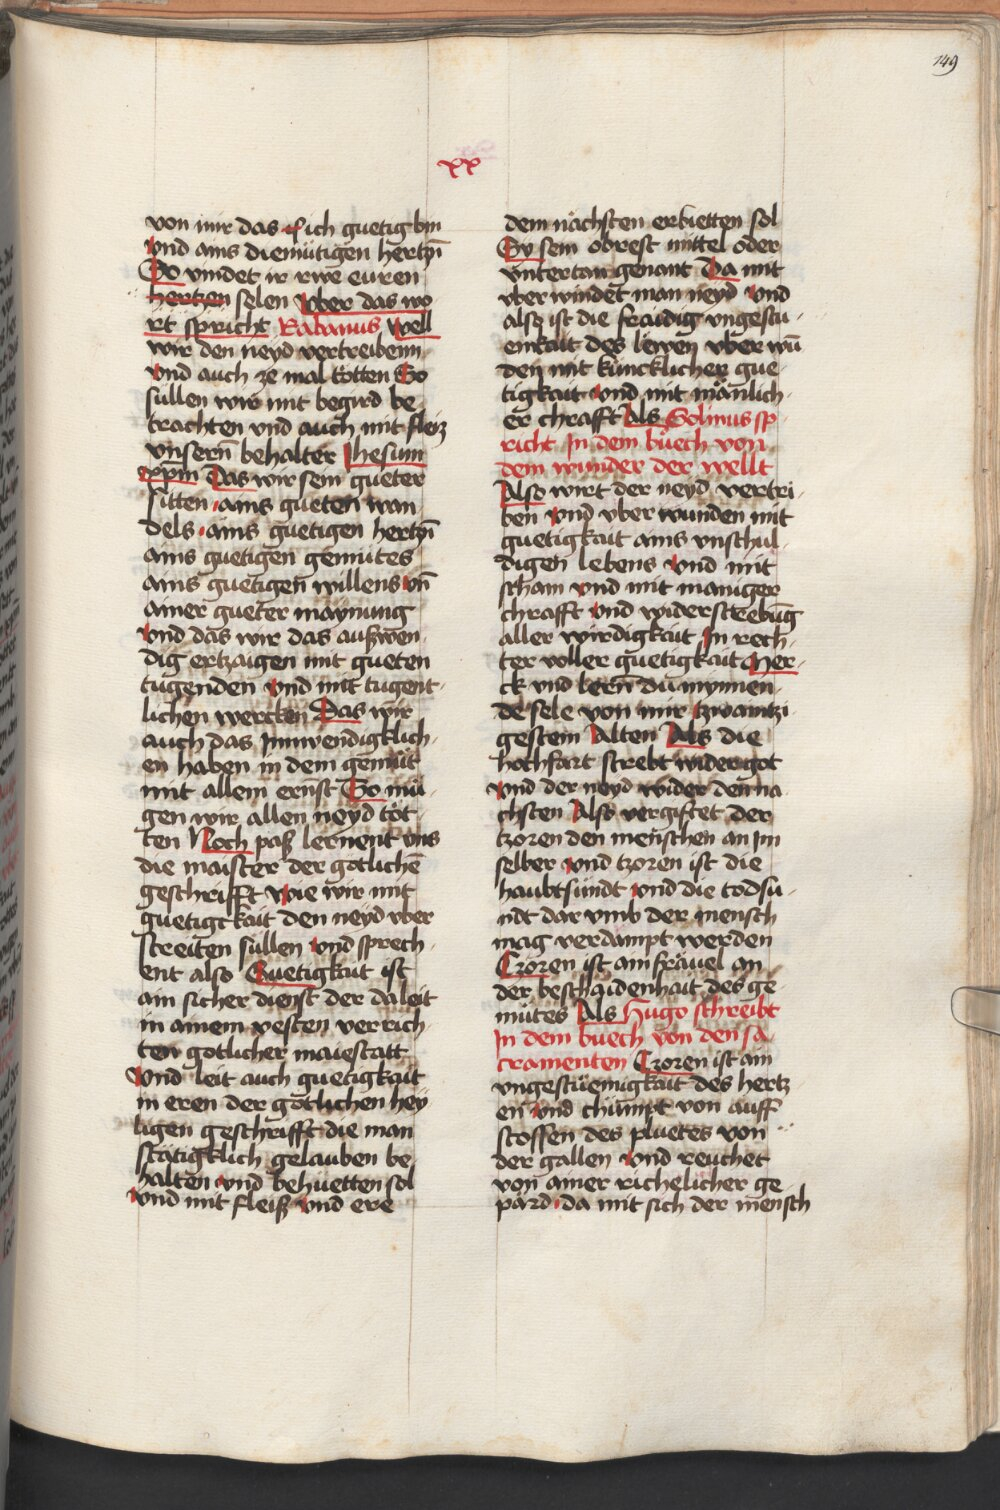 149
xx
von mir das ich guetig bin
vnd ains diemütigen hertzn̄
So vindet ir rwe euren
hertzen selen Vber das wo
rt spricht Rabanus Well
wir den neyd vertreibenn
vnd auch ze mal tötten So
süllen wir mit begird be
trachten vnd auch mit fleiz
vnsern̄ behalter Jhesum
xp̄m Das wir sein gueter
sitten ains gueten wan
dels ains guetigen hertzn̄
ains guetigen gemütes
ains guetigen̄ willens vn̄
ainer gueter maynung
vnd das wir das auszwen
dig ertzaigen mit gueten
tugenden vnd mit tugent
lichen wercken Das wir
auch das Innwendigklich
en haben in dem gemüt
mit allem ernst So mü
gen wir allen neyd töt
ten Noch pasz lernent vns
die maister der götlichē
geschrifft wie wir mit
guetigckait den neyd vber
streiten süllen vnd sprech
ent also Guetigkait ist
ain sicher dienst der da leit
in ainem vesten verrich
ten gotlicher maiestatt
Vnd leit auch guetigkait
in eren der götlichen hey
ligen geschrifft die man
stätigklich gelauben be
halten vnd behüetten sol
vnd mit fleisz vnd ere
dem nächsten erbietten sol
Ey sein obrest mittel oder
vntertan genant Da mit
vber windet man neyd vnd
also ist die fraidig vngestü
emkait des lewen vber wū
den mit küncklicher gue
tigkait vnd mit mänlich
er chrafft Als Solinus sp
richt In dem büech von
dem wunder der wellt
Also wirt der neyd vertri
ben vnd vber wunden mit
guetigkait ains vnschul
digen lebens vnd mit
scham vnd mit maniger
chrafft vnd widerstrebūg
aller wirdigkait In rech
ter voller guetigkait Mer
ck vnd lern̄ du mynnen
de sele von mir tzwaintzi
gestem Alten Als die
hochfart strebt wider got
vnd der neyd wider den na
chsten Also vergiftet der
tzoren den menschen an Im
selber vnd tzoren ist die
haubtsündt vnd die todsü
ndt dar vmb der mensch
mag verdampt werden
Czoren ist ain fräuel an
der beschaidenhait des ge
mütes Als Hugo schreibt
In dem buech von den sa
cramenten Czoren ist ain
vngestüemigkait des hertz
en vnd chümpt von auff
stossen des pluetes von
der gallen vnd reuchet
von ainer richelicher ge
pärd da mit sich der mensch